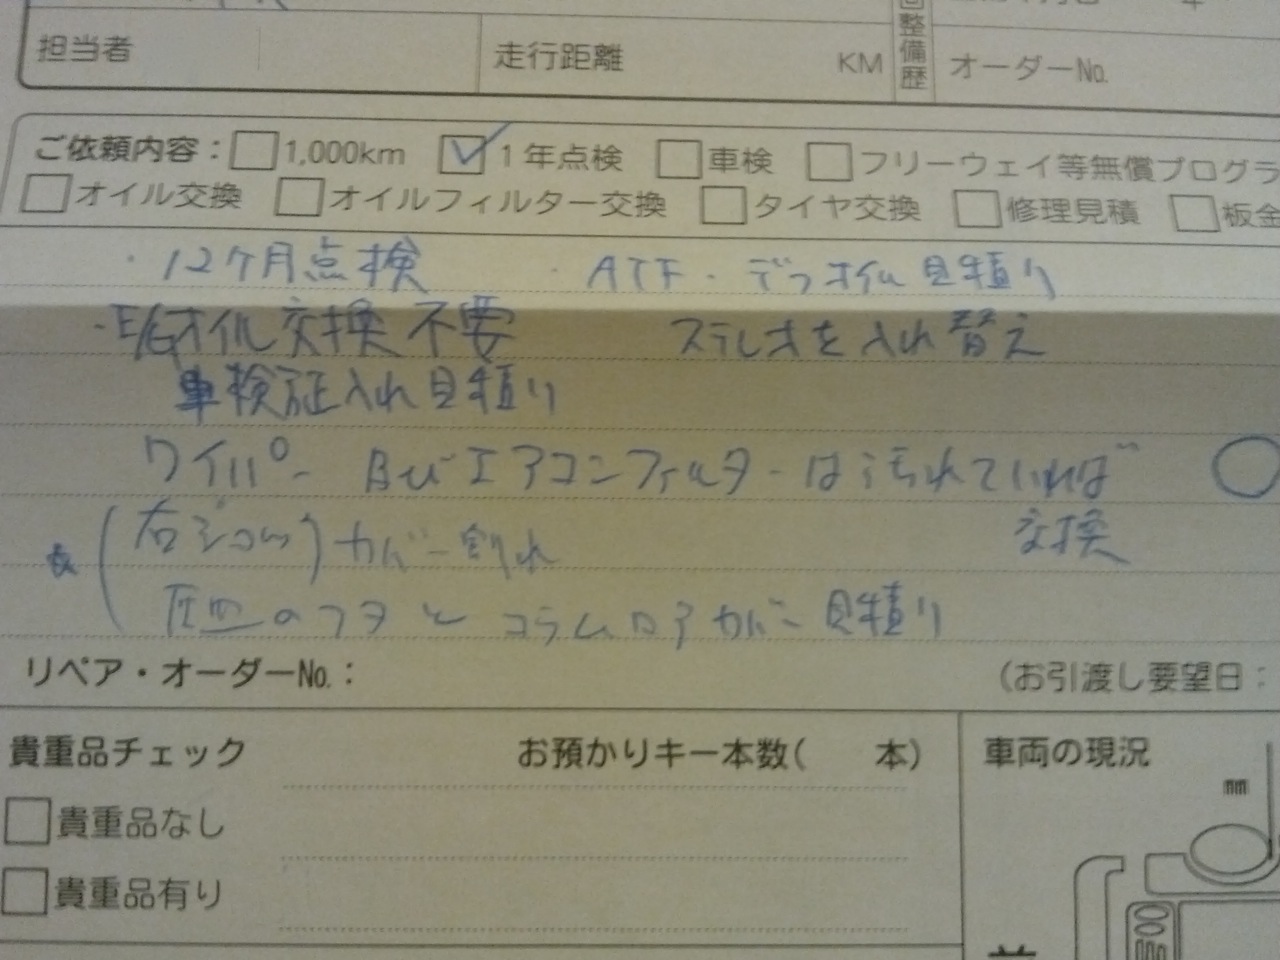 整備歴
担当者 走行距離 KM オーダーNo.
ご依頼内容： 1,000km 1年点検 車検 フリーウェイ等無償プログラ
オイル交換 オイルフィルター交換 タイヤ交換 修理見積 板金
・12ケ月点検 ・ATF・デフオイル見積り
・E/Gオイル交換不要 ステレオを入れ替え
車検証入れ見積り
ワイパー 及び エアコンフィルターは汚れていれば
交換
カバー割れ
のフタとコラムロアカバー見積り
リペア・オーダーNo.： （お引渡し要望日：
貴重品チェック お預かりキー本数( 本) 車両の現況
mm
貴重品なし
貴重品有り
前